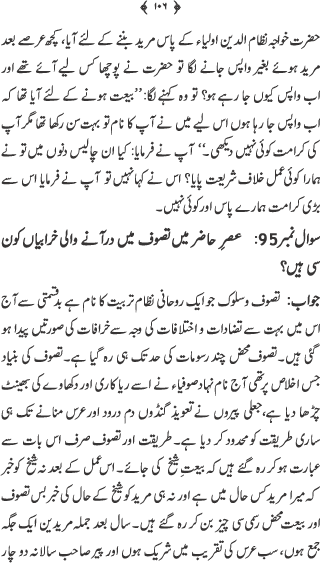 ﴿ ۱۰۶ ﴾
حضرت خواجہ نظام الدین اولیاء کے پاس مرید بننے کے لئے آیا، کچھ عرصے بعد
مرید ہوئے بغیر واپس جانے لگا تو حضرت نے پوچھا کس لیے آئے تھے اور
اب واپس کیوں جا رہے ہو؟ تو وہ کہنے لگا: ’’بیعت ہونے کے لئے آیا تھا کہ
اب واپس جا رہا ہوں اس لیے میں نے آپ کا نام تو بہت سن رکھا تھا مگر آپ
کی کرامت کوئی نہیں دیکھی۔‘‘ آپ نے فرمایا: کیا ان چالیس دنوں میں تو نے
ہمارا کوئی عمل خلاف شریعت پایا؟ اس نے کہا نہیں تو آپ نے فرمایا اس سے
بڑی کرامت ہمارے پاس اور کوئی نہیں۔
سوال نمبر 95: عصرِ حاضر میں تصوف میں در آنے والی خرابیاں کون
سی ہیں؟
جواب: تصوف و سلوک جو ایک روحانی نظام تربیت کا نام ہے بدقسمتی سے آج
اس میں بہت سے تضادات و اختلافات کی وجہ سے خرافات کی صورتیں پیدا ہو
گئی ہیں۔ تصوف محض چند رسومات کی حد تک ہی رہ گیا ہے۔ تصوف کی بنیاد
جس اخلاص پر تھی آج نام نہاد صوفیاء نے اسے ریاکاری اور دکھاوے کی بھینٹ
چڑھا دیا ہے، جعلی پیروں نے تعویذ گنڈوں دم درود اور عرس منانے تک ہی
ساری طریقت کو محدود کر دیا ہے۔ طریقت اور تصوف صرف اس بات سے
عبارت ہو کر رہ گئے ہیں کہ بیعتِ شیخ کی جائے۔ اس عمل کے بعد نہ شیخ کو خبر
کہ میرا مرید کس حال میں ہے اور نہ ہی مرید کو شیخ کے حال کی خبر بس تصوف
اور بیعت محض رسمی سی چیز بن کر رہ گئے ہیں۔ سال بعد جملہ مریدین ایک جگہ
جمع ہوں، سب عرس کی تقریب میں شریک ہوں اور پیر صاحب سالانہ دو چار